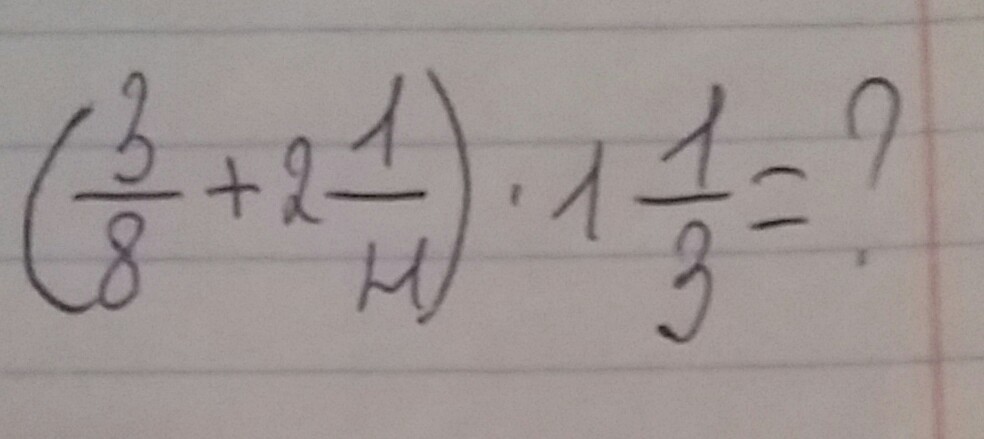 (3/8 + 2 1/4) · 1 1/3 = ?